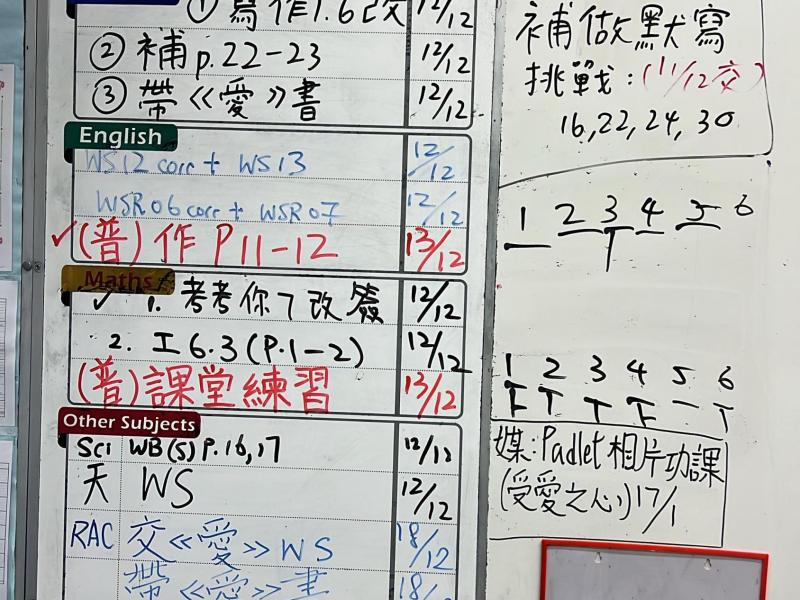 ① 寫作1.6改 12/12
② 補p.22-23 12/12
③ 帶《愛》書 12/12
English
WS12 corr + WS13 12/12
WSR06 corr + WSR07 12/12
✓(普)作 P11-12 13/12
Maths
✓ 1. 考考你7改簽 12/12
2. 工6.3(P.1-2) 12/12
(普)課堂練習 13/12
Other Subjects
Sci WB(5) P.16,17 12/12
天 WS 12/12
RAC 交《愛》WS 18/12
帶《愛》書 18/
補做默寫
挑戰:(11/12交)
16,22,24,30
1 2 3 4 5 6
T
1 2 3 4 5 6
F T T F – T
媒:Padlet相片功課
(受愛之心)17/1